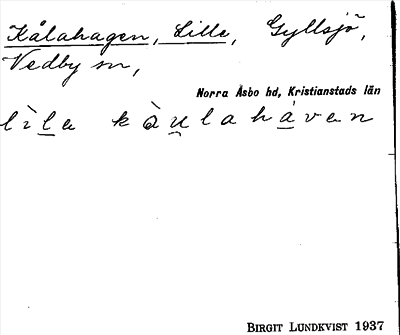 Kålahagen, Lille, Gyllsjö,
Vedby sn,
Norra Åsbo hd, Kristianstads län
lìle kàulahávan
BIRGIT LUNDKVIST 1937